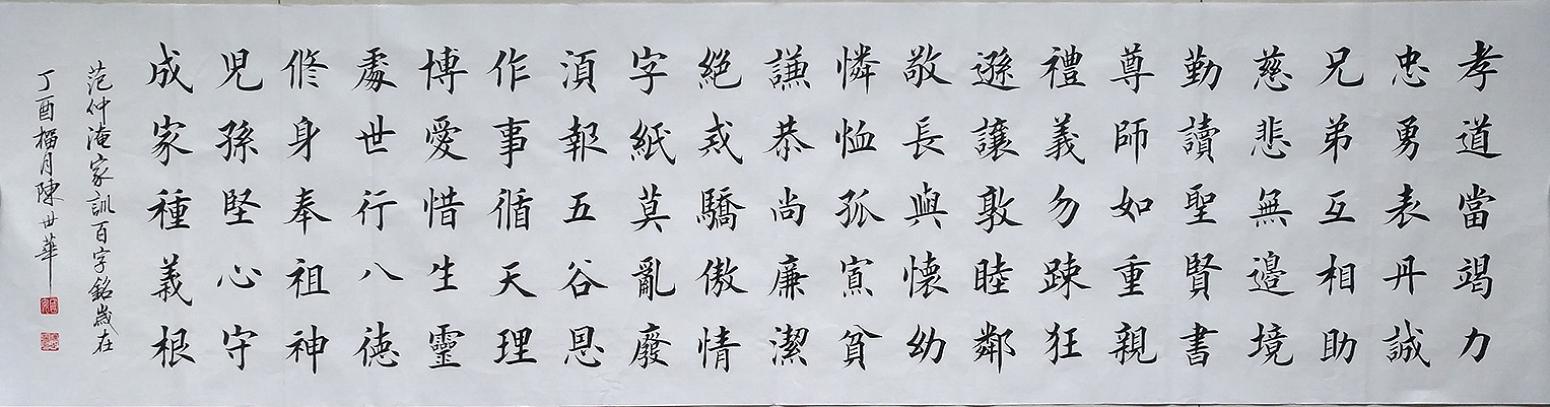 孝道當竭力
忠勇表丹誠
兄弟互相助
慈悲無邊境
勤讀聖賢書
尊師如重親
禮義勿踈狂
遜讓敦睦鄰
敬長與懷幼
憐恤孤寡貧
謙恭尚廉潔
絕戒驕傲情
字紙莫亂廢
須報五谷恩
作事循天理
博愛惜生靈
處世行八德
修身奉祖神
兒孫堅心守
成家種義根
范仲淹家訓百字銘歲在
丁酉榴月陳世華